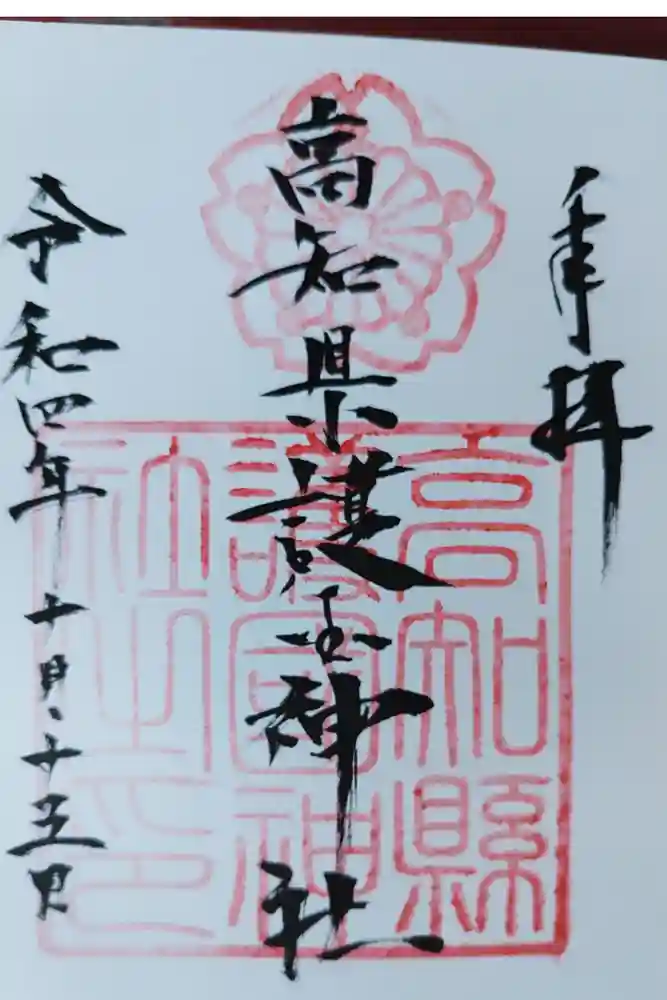 奉拝
高知県護国神社
令和四年十月二十五日
高知縣
護國神
社之印